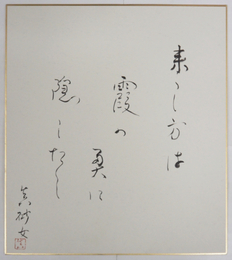 来し方は
霞の
奥に
隠したし
真砂女